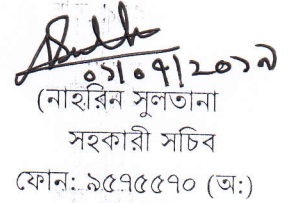 ০১/০৭/২০১৯
(নাহরিন সুলতানা
সহকারী সচিব
ফোন: ৯৫৭৫৫৭০ (অ:)